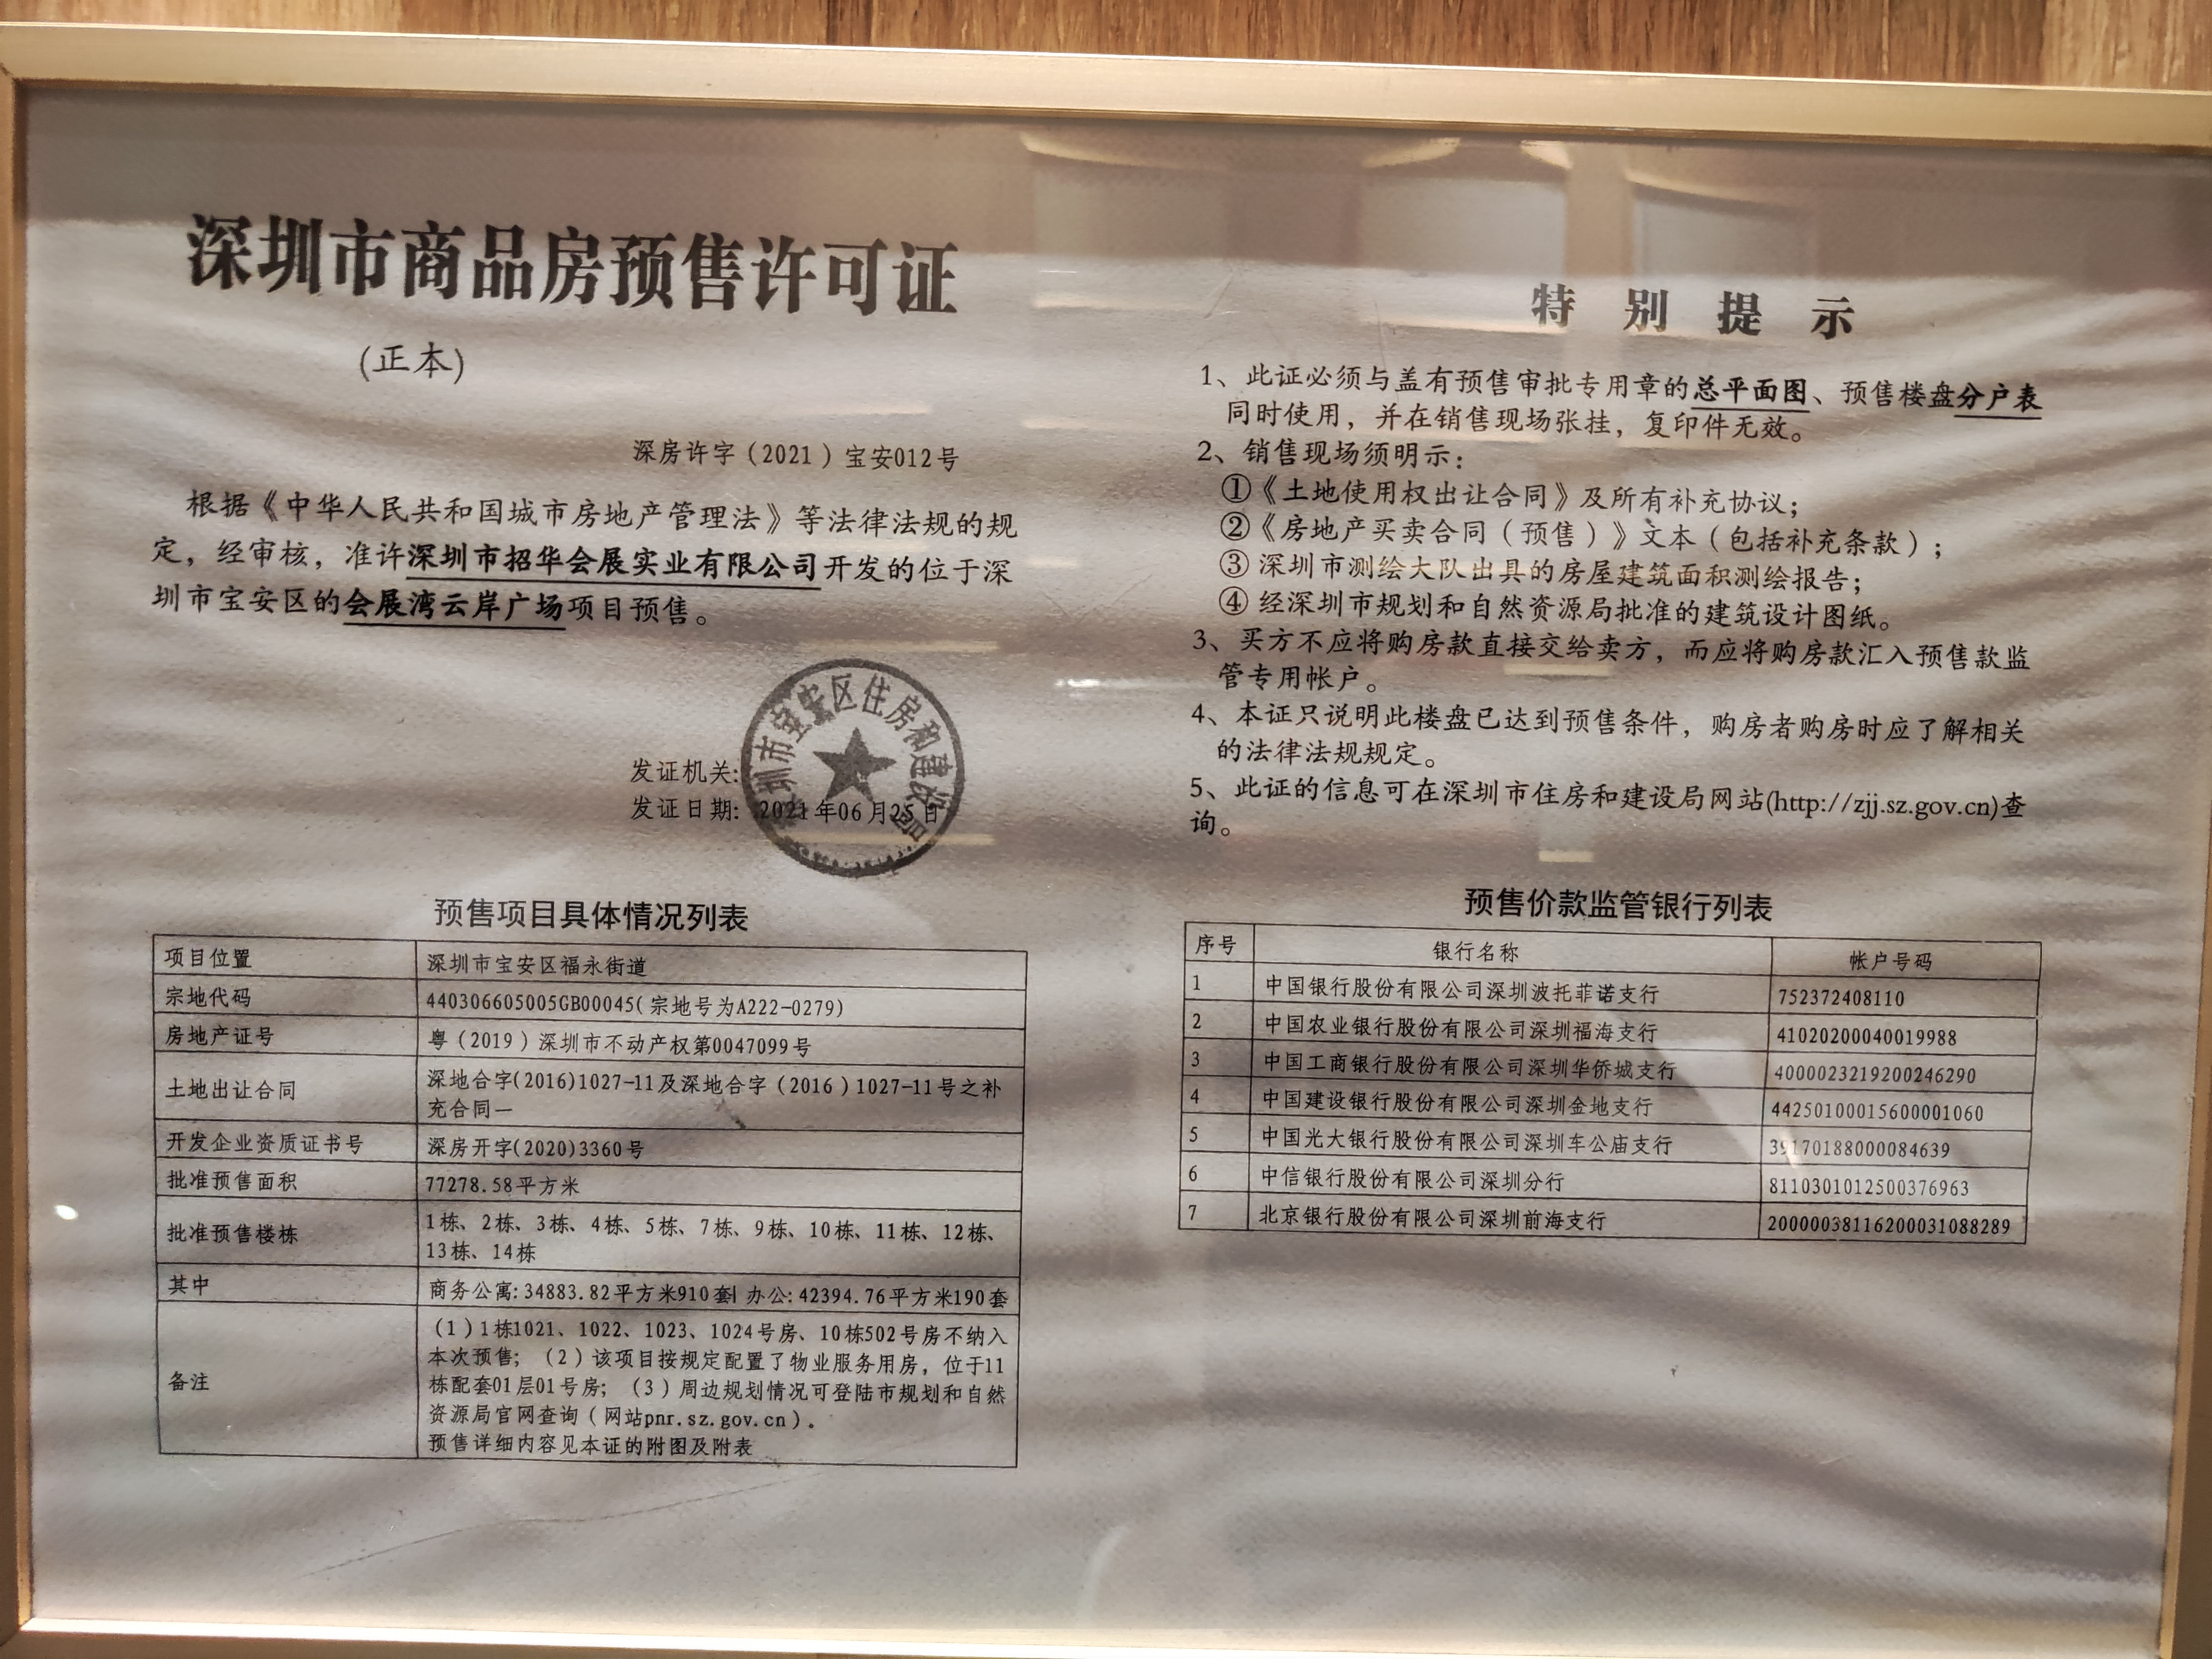 深圳市商品房预售许可证
(正本)
深房许字（2021）宝安012号
根据《中华人民共和国城市房地产管理法》等法律法规的规
定，经审核，准许深圳市招华会展实业有限公司开发的位于深
圳市宝安区的会展湾云岸广场项目预售。
发证机关:
发证日期: 2021年06月25日
深圳市宝安区住房和建设局
预售项目具体情况列表
项目位置 深圳市宝安区福永街道
宗地代码 440306605005GB00045(宗地号为A222-0279)
房地产证号 粤（2019）深圳市不动产权第0047099号
土地出让合同 深地合字(2016)1027-11及深地合字（2016）1027-11号之补
充合同一
开发企业资质证书号 深房开字(2020)3360号
批准预售面积 77278.58平方米
批准预售楼栋 1栋、2栋、3栋、4栋、5栋、7栋、9栋、10栋、11栋、12栋、
13栋、14栋
其中 商务公寓:34883.82平方米910套| 办公:42394.76平方米190套
备注 （1）1栋1021、1022、1023、1024号房、10栋502号房不纳入
本次预售；（2）该项目按规定配置了物业服务用房，位于11
栋配套01层01号房；（3）周边规划情况可登陆市规划和自然
资源局官网查询（网站pnr.sz.gov.cn）。
预售详细内容见本证的附图及附表
特别提示
1、此证必须与盖有预售审批专用章的总平面图、预售楼盘分户表
同时使用，并在销售现场张挂，复印件无效。
2、销售现场须明示：
①《土地使用权出让合同》及所有补充协议；
②《房地产买卖合同（预售）》文本（包括补充条款）；
③深圳市测绘大队出具的房屋建筑面积测绘报告；
④经深圳市规划和自然资源局批准的建筑设计图纸。
3、买方不应将购房款直接交给卖方，而应将购房款汇入预售款监
管专用帐户。
4、本证只说明此楼盘已达到预售条件，购房者购房时应了解相关
的法律法规规定。
5、此证的信息可在深圳市住房和建设局网站(http://zjj.sz.gov.cn)查
询。
预售价款监管银行列表
序号 银行名称 帐户号码
1 中国银行股份有限公司深圳波托菲诺支行 752372408110
2 中国农业银行股份有限公司深圳福海支行 41020200040019988
3 中国工商银行股份有限公司深圳华侨城支行 4000023219200246290
4 中国建设银行股份有限公司深圳金地支行 44250100015600001060
5 中国光大银行股份有限公司深圳车公庙支行 39170188000084639
6 中信银行股份有限公司深圳分行 8110301012500376963
7 北京银行股份有限公司深圳前海支行 20000038116200031088289